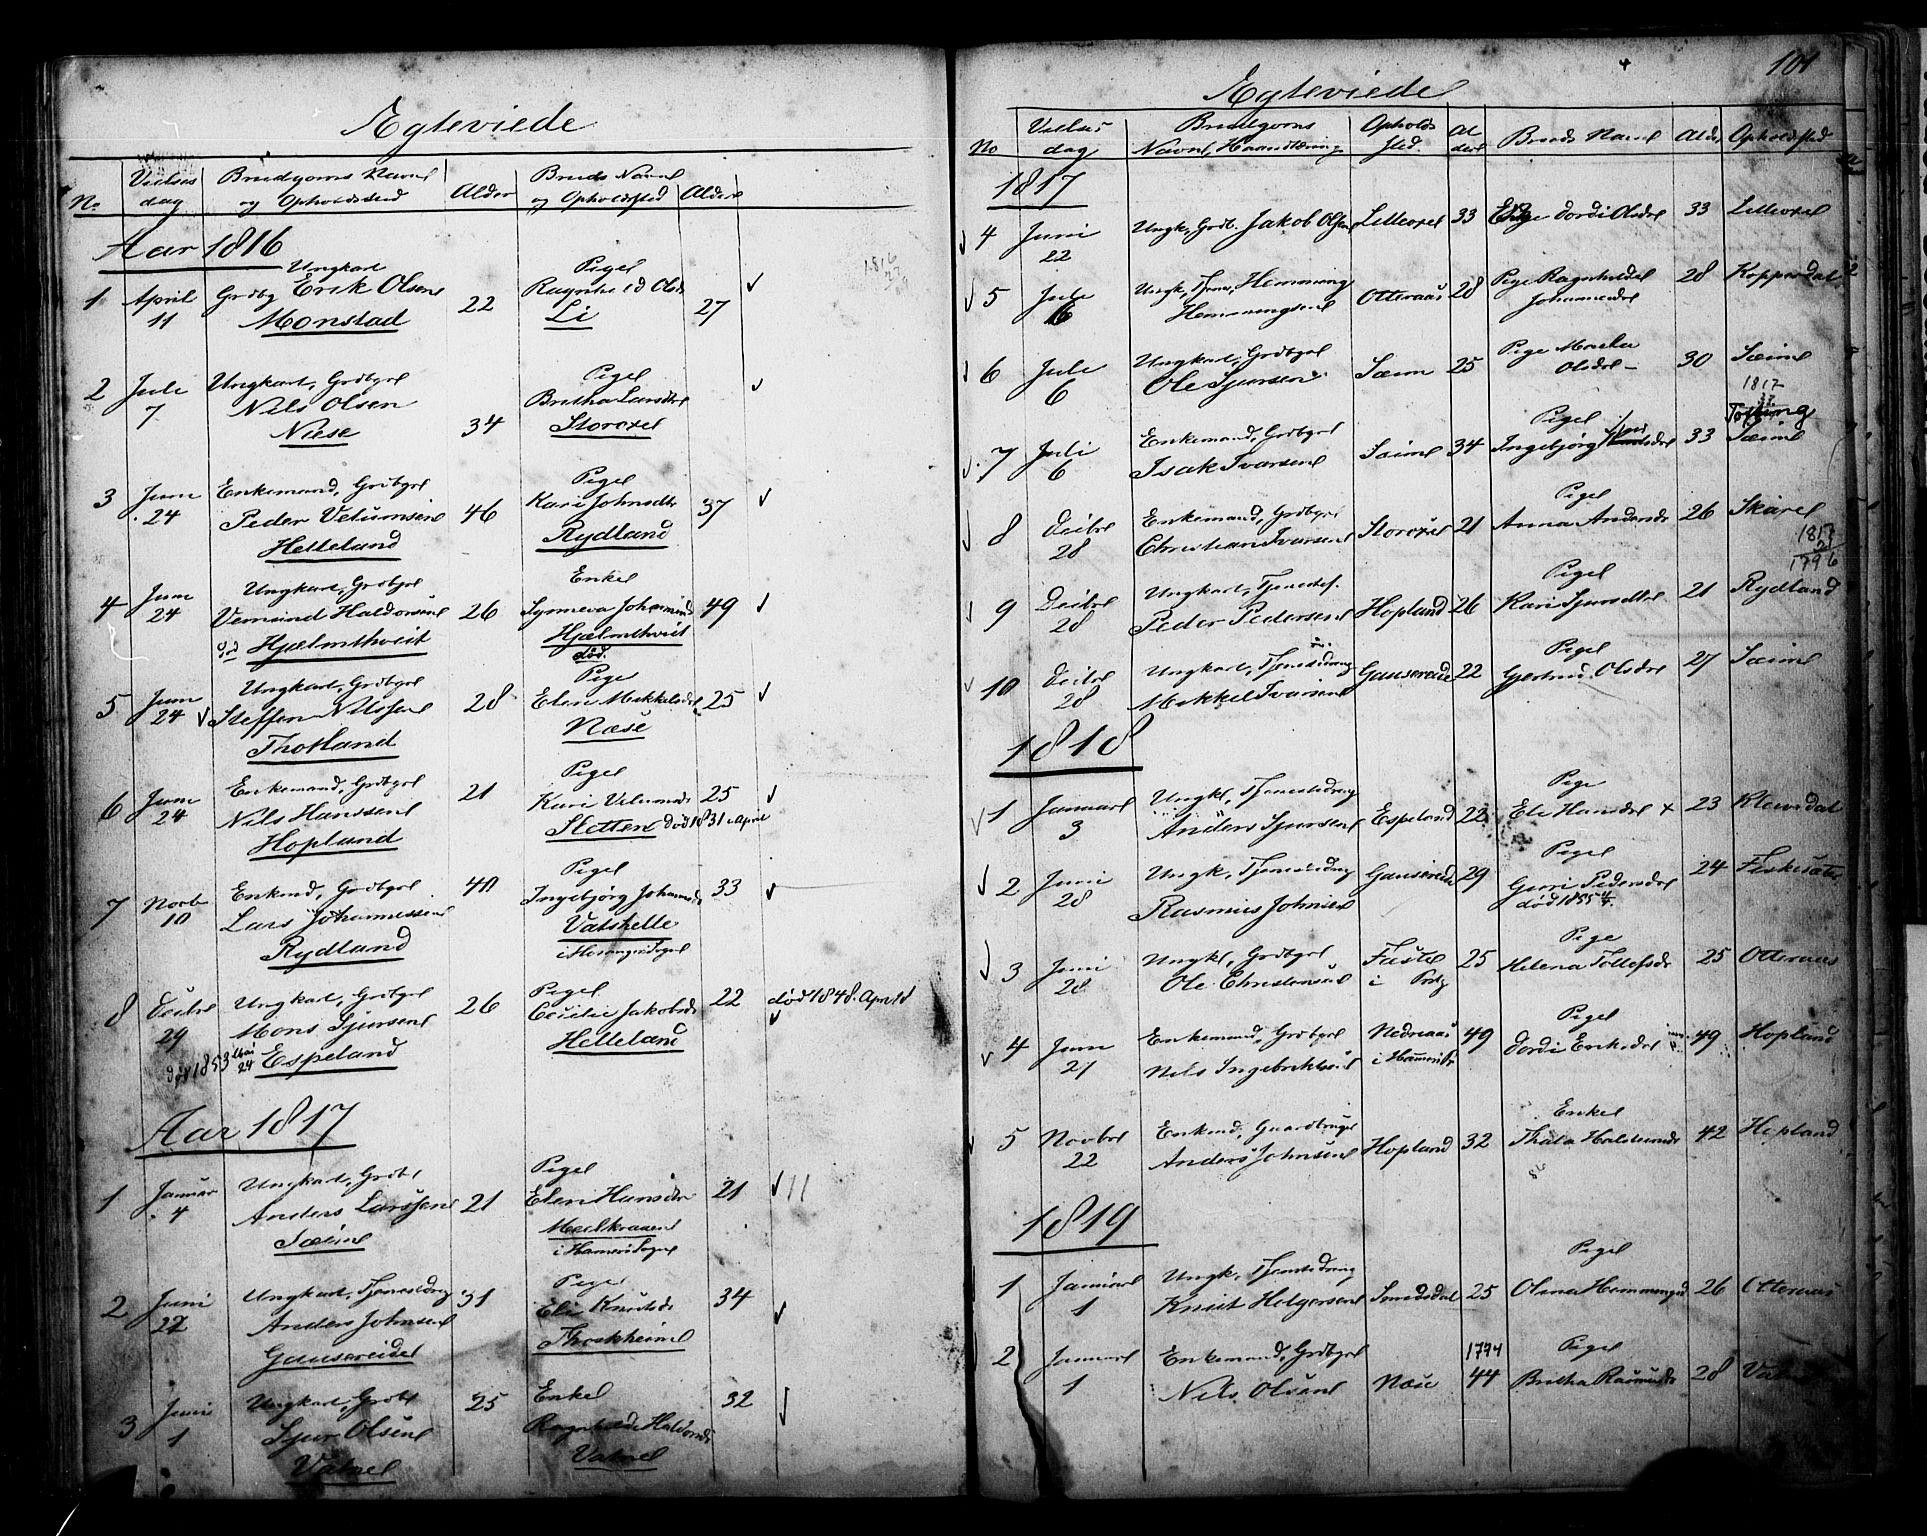 Egteviede
No
Vielses dag
Brudgoms Navn og Opholdssted
Alder
Bruds Navn og Opholdssted
Alder
Aar 1816
1 April 11 Ungkarl Grdbg Erik Olsen Monstad 22 Pige Ragnhild Olsd Li 27
2 Juli 7 Ungkarl, Grdbgr Nils Olsen Niese 34 Pige Britha Larsdtr Storoxel
3 Juni 24 Enkemand, Grdbgr Peder Velumsen Helleland 46 Pige Kari Johnsdtr Rydland 37
4 Juni 24 Ungkarl, Grdbgr Vemund Haldorsen død Hjelmthveit 26 Enke Synneva Johannesd Hjelmthveit død. 49
5 Juni 24 Ungkarl, Grdbgr Steffen Nilssen Thotland 28 Pige Elen Mikkelsdtr Næse 25
6 Juni 24 Enkemand, Grdbgr Nils Hanssen Hopland 21 Pige Kari Velumsdr Sletten død 1831 April 25
7 Novb 10 Enkmd, Grdbgr Lars Johannessen Rydland 40 Pige Ingebjørg Johannesd Vatshelle i Hosanger Sogn 33
8 Decbr 29 Ungkarl, Grdbgr Mons Sjursen Espeland død 1853 Mai 24 26 Pige Cecilie Jakobsdr Helleland 22 død 1848. April
Aar 1817
1 Januar 4 Ungkarl, Grdb Anders Larssen Sæim 21 Pige Elen Hansdtr Mælkraaen i Hamers Sogn 21
2 Juni 22 Ungkarl, Tjenestdreng Anders Johnsen Gausereidet 31 Pige Eli Knutsdr Thoskheim 34
3 Juni 1 Ungkarl, Grdb Sjur Olsen Vatnel 25 Enke Ragnhilde Haldorsdr Vatnel 32
101
Egteviede
No
Vielses dag
Brudgoms Navn, Haandtering
Opholds sted.
Alder
Bruds Navn
Alder
Opholdssted
1817
4 Juni 22 Ungk, Grdb. Jakob Olsen Lilleoxel 33 Pige Dordi Olsdtr 33 Lilleoxel
5 Juli 6 Ungk, Tjener, Hemming Hemmingsen Otteraas 28 Pige Ragnhilde Johannesdtr 28 Koppardal
6 Juli 6 Ungkarl, Grdbgr Ole Sjursen Sæim 25 Pige Marka Olsdtr 30 Sæim
1817
7 Juli 6 Enkemand, Grdbgr Isak Ivarsen Sæim 34 Pige Ingebjørg 33 Sæim
8 Decbr 28 Enkemand, Grdbgr Christian Ivarsen Storoxel 21 Pige Anna Andersdr 26 Skarel
1817
21
1796
9 Decbr 28 Ungkarl, Tjenestef. Peder Pedersen Hopland 26 Pige Kari Sjursdtr 21 Rydland
10 Decbr 28 Ungkarl, Tjenestdreng Mikkel Ivarsen Gausereidet 22 Pige Gjertrud Olsdtr 27 Sæim
1818
1 Januar 3 Ungkl, Tjenestedreng Anders Sjursen Espeland 22 Pige Eli Hansdtr 23 Kleivdal
2 Juni 28 Ungk, Tjenestdreng Rasmus Johnsen Gausereide 29 Pige Guri Pedersdtr død 1855 24 Fiskesæter
3 Juni 28 Ungkl, Grdbgr Ole Christensen Fuste i 25 Pige Helena Tollefsdr 25 Otteraas
4 Juni 21 Enkemand, Grdbgr Nils Ingebriktsen Nedreaas i Hammer 49 Pige Dordi Eriksdtr 49 Hopland
5 Novbr 22 Enkmd, Gaardbruger Anders Johnsen Hopland 32 Enke Thala Halsteinsdr 42 Hopland
1819
1 Januar 1 Ungk, Tjenestdreng Knut Helgesen Smedsdal 25 Pige Olina Hemmingsd 26 Otteraas
2 Januar 1 Enkemand, Grdbgr Nils Olsen Næse 1774 44 Pige Britha Rasmusdr 28